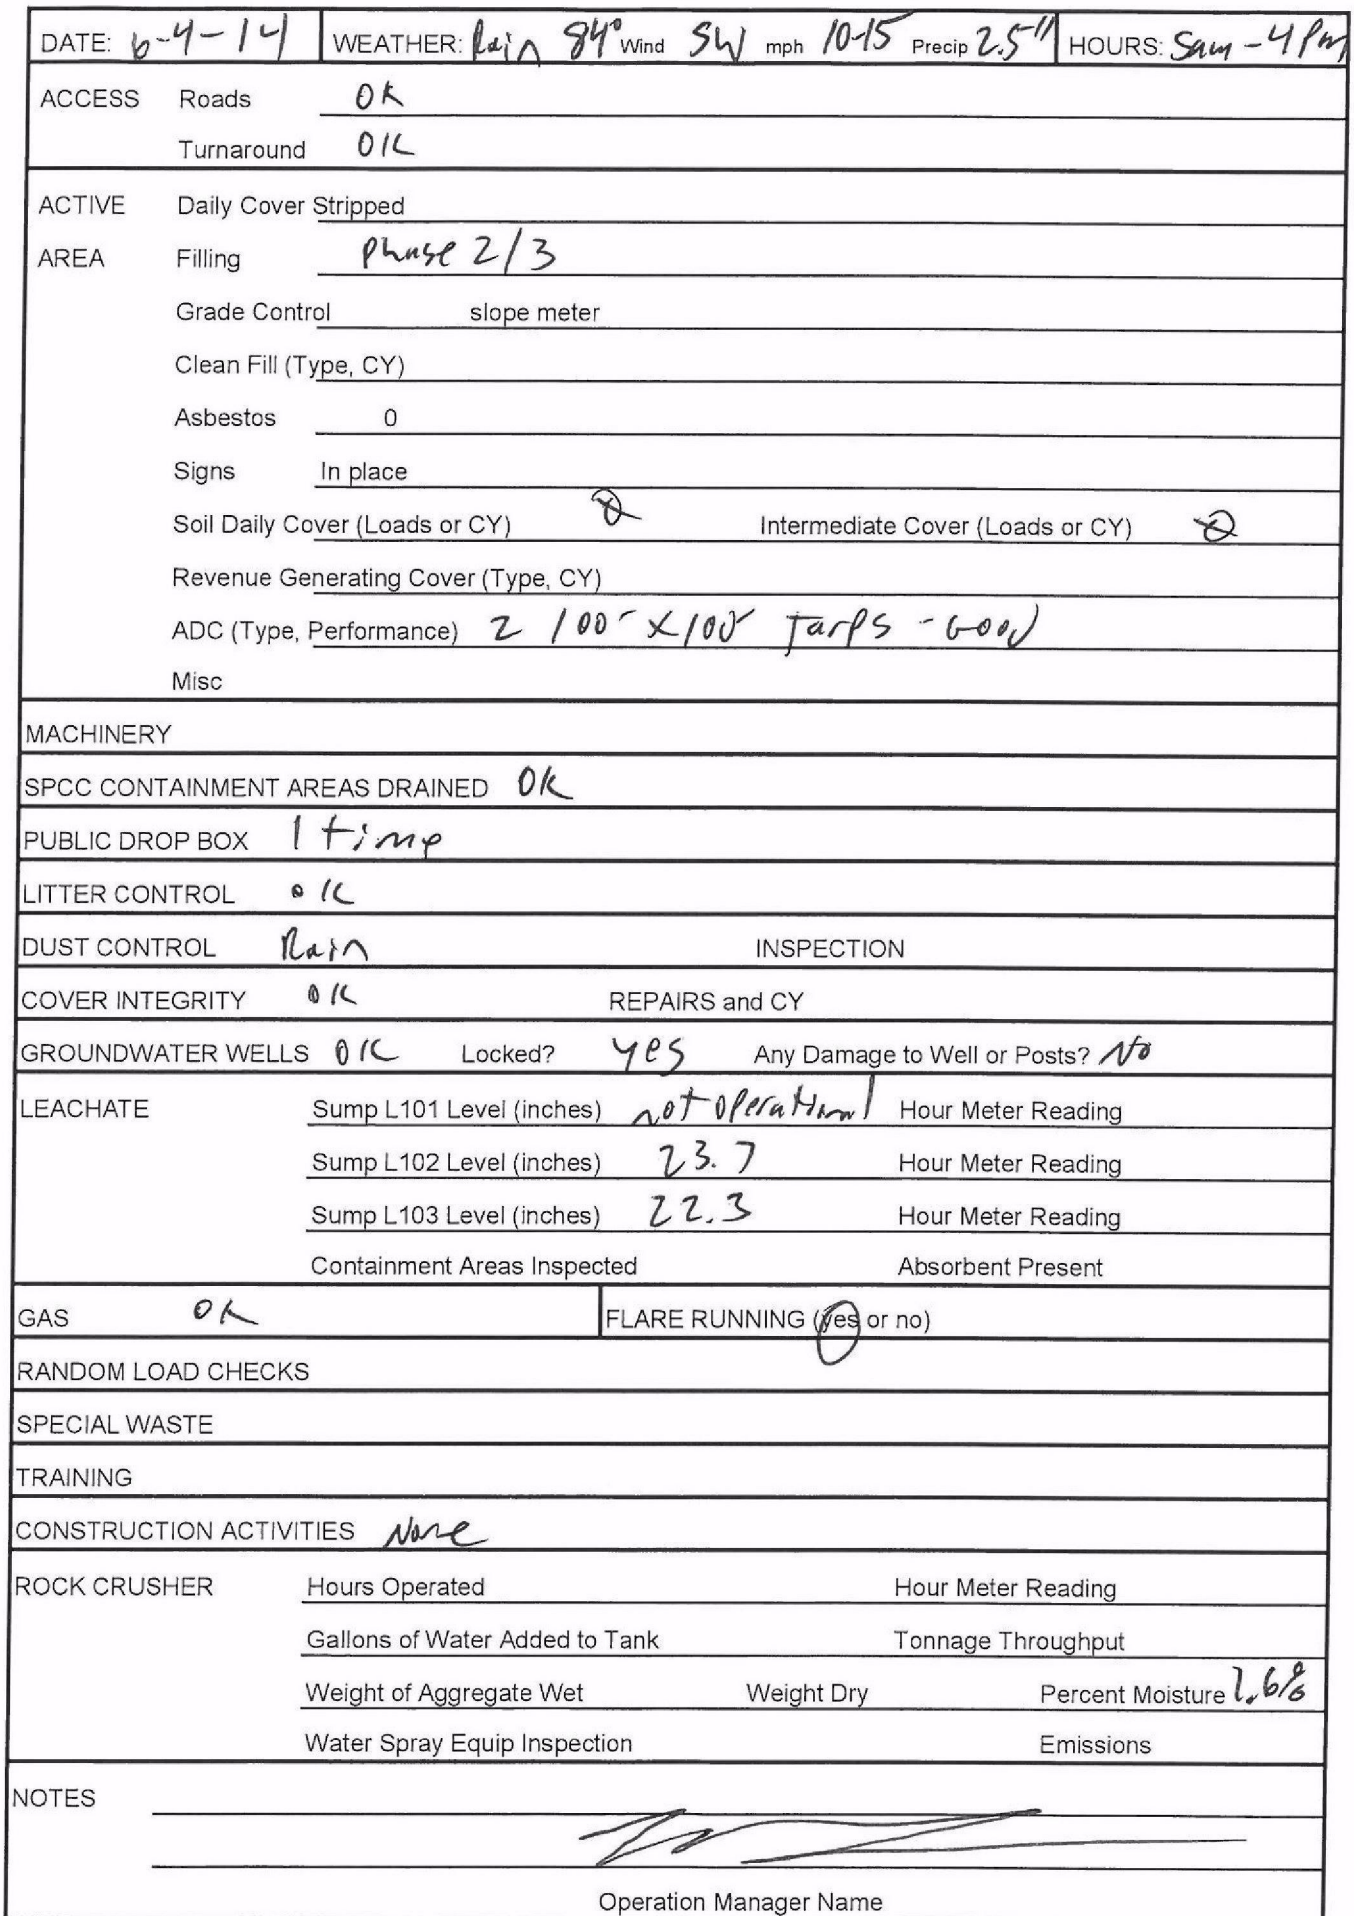 DATE: 6-4-14 WEATHER: Rain 84° Wind SW mph 10-15 Precip 2.5" HOURS: 5am - 4 Pm
ACCESS Roads OK
Turnaround OK
ACTIVE Daily Cover Stripped
AREA Filling Phase 2/3
Grade Control slope meter
Clean Fill (Type, CY)
Asbestos 0
Signs In place
Soil Daily Cover (Loads or CY) Intermediate Cover (Loads or CY)
Revenue Generating Cover (Type, CY)
ADC (Type, Performance) 2 100' X 100' Tarps - Good
Misc
MACHINERY
SPCC CONTAINMENT AREAS DRAINED OK
PUBLIC DROP BOX 1 time
LITTER CONTROL OK
DUST CONTROL Rain INSPECTION
COVER INTEGRITY OK REPAIRS and CY
GROUNDWATER WELLS OK Locked? yes Any Damage to Well or Posts? No
LEACHATE Sump L101 Level (inches) not operational Hour Meter Reading
Sump L102 Level (inches) 23.7 Hour Meter Reading
Sump L103 Level (inches) 22.3 Hour Meter Reading
Containment Areas Inspected Absorbent Present
GAS OK FLARE RUNNING (yes or no)
RANDOM LOAD CHECKS
SPECIAL WASTE
TRAINING
CONSTRUCTION ACTIVITIES None
ROCK CRUSHER Hours Operated Hour Meter Reading
Gallons of Water Added to Tank Tonnage Throughput
Weight of Aggregate Wet Weight Dry Percent Moisture
Water Spray Equip Inspection Emissions
NOTES
Operation Manager Name